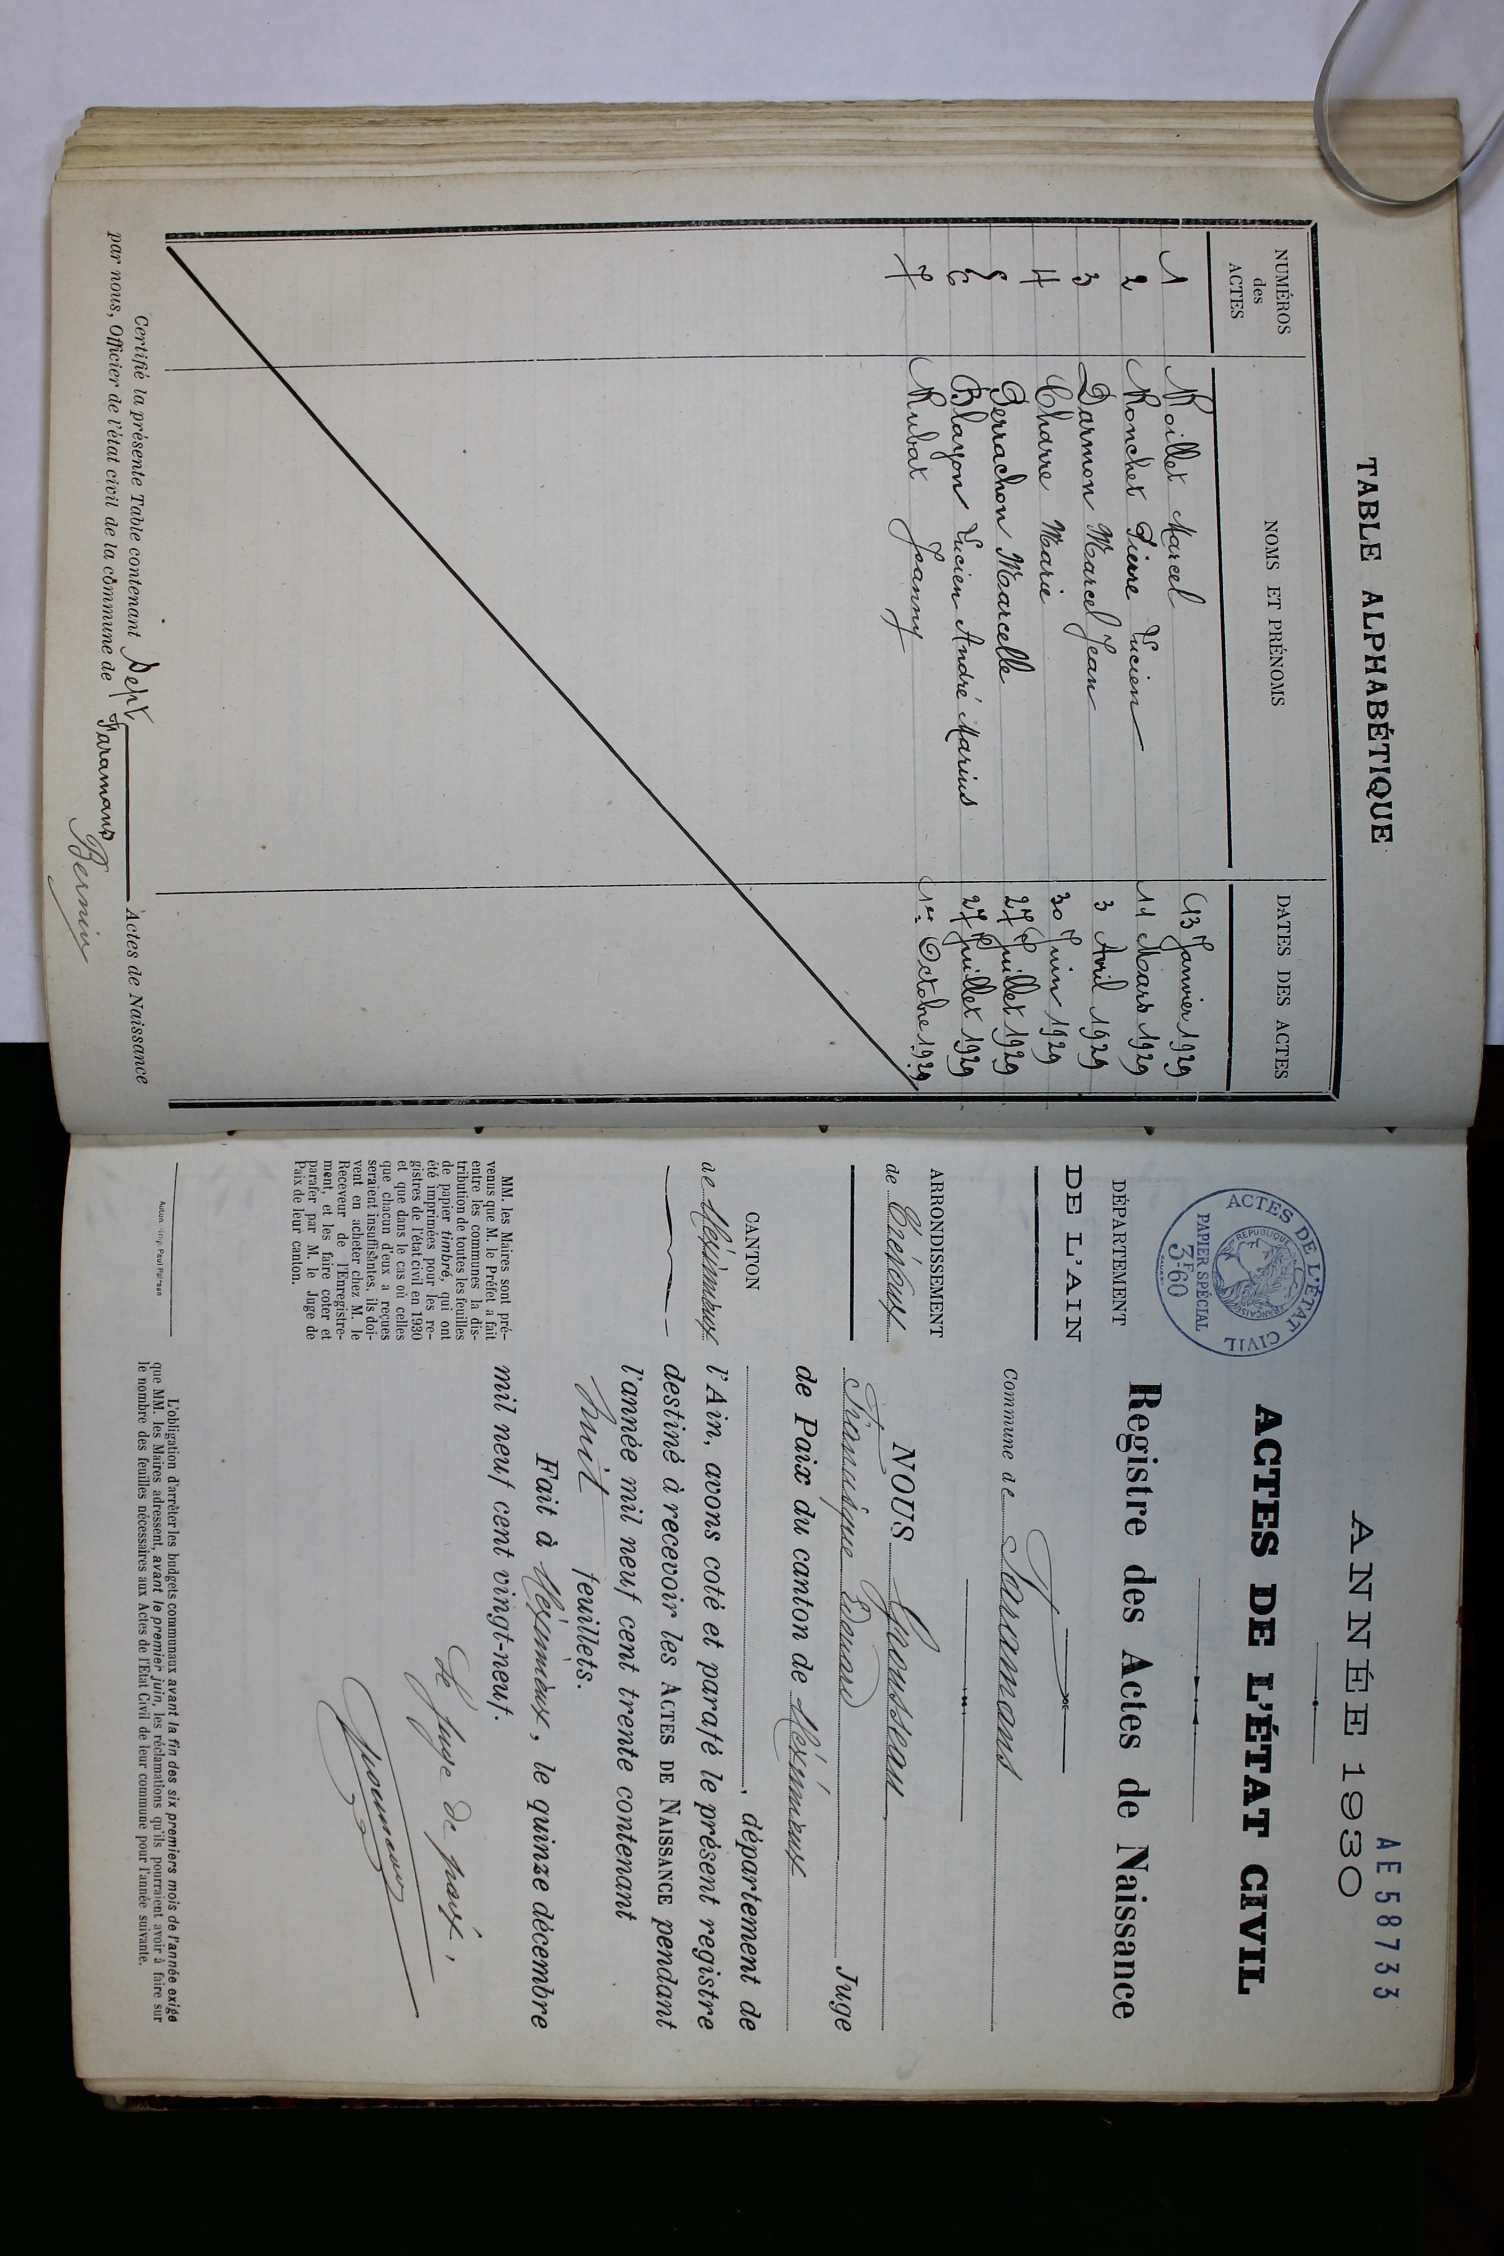 TABLE ALPHABÉTIQUE
NUMÉROS des ACTES NOMS ET PRÉNOMS DATES DES ACTES
1 Roillet Marcel 13 Janvier 1929
2 Ronchet Pierre Lucien 11 Mars 1929
3 Darmon Marcel Jean 3 Avril 1929
4 Charre Marie 30 Juin 1929
5 Perrachon Marcelle 27 Juillet 1929
6 Blayon Lucien André Marius 27 Juillet 1929
7 Rubat Joanny 1er Octobre 1929
Certifié la présente Table contenant Sept Actes de Naissance
par nous, Officier de l'état civil de la commune de Faramans
Bernin
AE58733
ANNÉE 1930
ACTES DE L'ÉTAT CIVIL
Registre des Actes de Naissance
ACTES DE L'ÉTAT CIVIL
RÉPUBLIQUE FRANÇAISE
PAPIER SPÉCIAL
3F60
DÉPARTEMENT
DE L'AIN
ARRONDISSEMENT
de Trévoux
CANTON
de Méximieux
MM. les Maires sont pré-
venus que M. le Préfet a fait
entre les communes la dis-
tribution de toutes les feuilles
de papier timbré, qui ont
été imprimées pour les re-
gistres de l'état civil en 1930
et que dans le cas où celles
que chacun d'eux a reçues
seraient insuffisantes, ils doi-
vent en acheter chez M. le
Receveur de l'Enregistre-
ment, et les faire coter et
parafer par M. le Juge de
Paix de leur canton.
Commune de Faramans
NOUS Grousseau
Dominique Edouard Juge
de Paix du canton de Méximieux
, département de
l'Ain, avons coté et parafé le présent registre
destiné à recevoir les ACTES DE NAISSANCE pendant
l'année mil neuf cent trente contenant
huit feuillets.
Fait à Méximieux, le quinze décembre
mil neuf cent vingt-neuf.
Le juge de paix,
L'obligation d'arrêter les budgets communaux avant la fin des six premiers mois de l'année exige
que MM. les Maires adressent, avant le premier juin, les réclamations qu'ils pourraient avoir à faire sur
le nombre des feuilles nécessaires aux Actes de l'Etat Civil de leur commune pour l'année suivante.